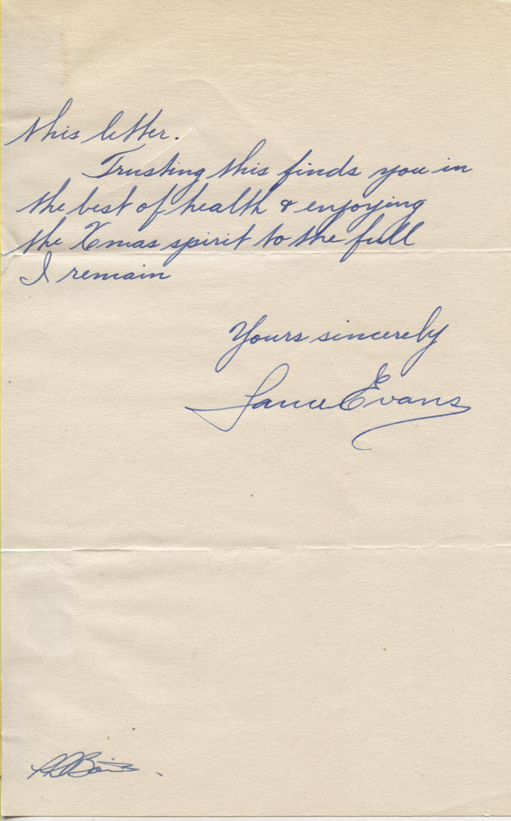 this letter.
Trusting this finds you in
the best of health & enjoying
the Xmas spirit to the full
I remain
Yours sincerely
Lance Evans